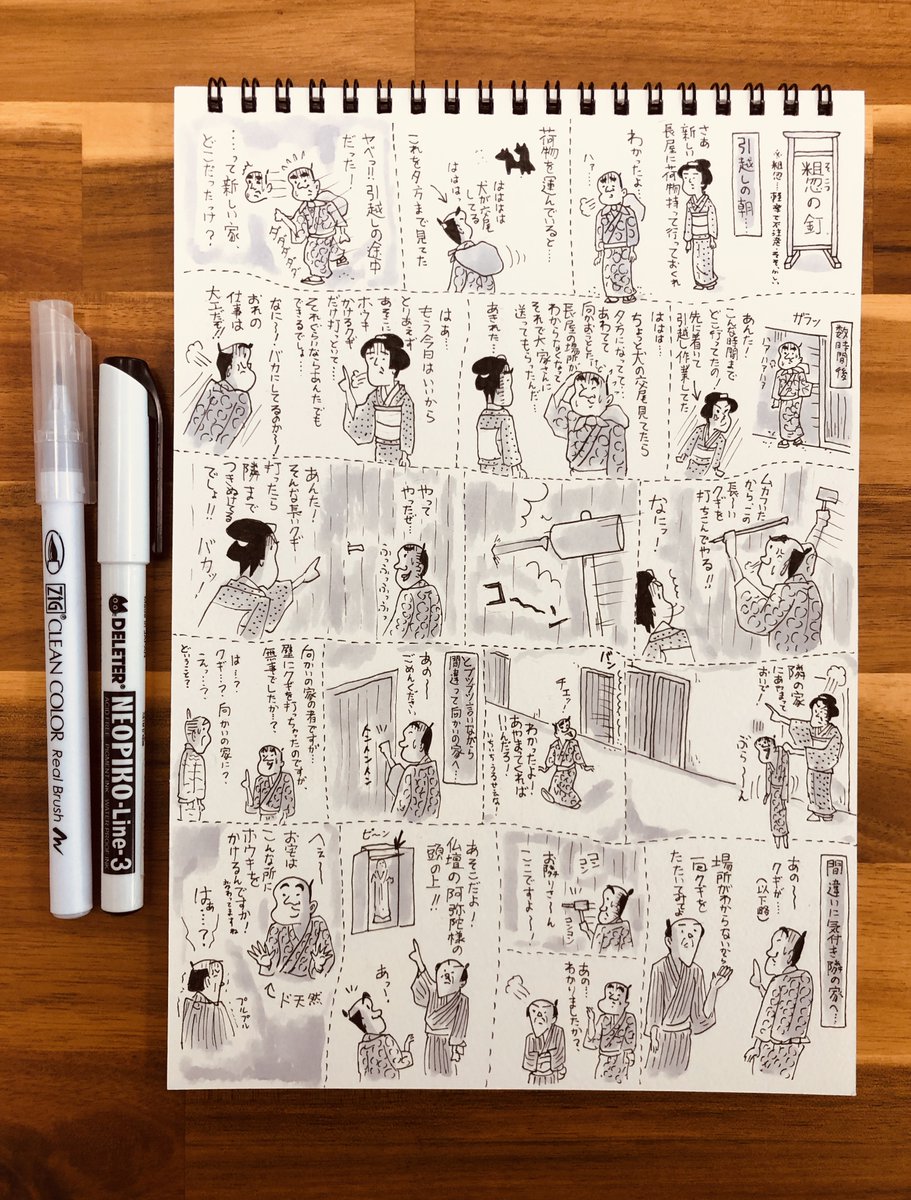 そこつ
粗忽の釘
引越しの朝…
さあ
新しい
長屋に荷物持って行っておくれ
わかったよ…
ハァ…
荷物を運んでいると…
はははは
犬が交尾
してる
ははは…
これを夕方まで見てた
ヤベっ!!引越しの途中
だった!
…って新しい家、
どこだったっけ?
数時間後
ガラン
あんた!
こんな時間まで
どこ行ってたの!
先に着いて
引越し作業してた
ははは…
ちょっと犬の交尾見てたら
夕方になってって…
あわてて
向かおうとした
長屋の場所が
わからなくなって
それで大家さんに
送ってもらったんだ…
あきれた…
はぁ…
もう今日はいいから
とりあえず
あそこに
ホウキ
かけるクギ
だけ打っといて…
それぐらいならあんたでも
できるでしょ…
なに〜!バカにしてるのか〜!
おれの
仕事は
大工だぞ!!
ムカついた
からこの
長〜い
クギを
打ちこんでやる!!
なにっ!
やって
やったぜ…
ふっふっふっふっ
あんた!
そんな長いクギ
打ったら
隣まで
つきぬけてる
でしょ!!
バカッ
隣の家
にあやまって
おいで
ぶら〜ん
バン
チェッ!
わかったよ!
あやまってくれば
いいんだろ!
いちいちうるせぇな!
とブツブツ言いながら
間違って向かいの家へ…
あの〜
ごめんください
トントントン
向かいの家の者ですが…
壁にクギを打っちゃったのですが
無事でしたか…?
は…?
クギ…?向かいの家…?
えっ…?
どういうこと?
間違いに気付き隣の家へ…
あの〜
クギが…
(以下略)
場所がわからないから
一回クギを
たたいてみよ
コン
コン
コンコン
お隣りさ〜ん
ここですよ〜
あの…
わかりましたか?
あそこだよ!
仏壇の阿弥陀様の
頭の上!!
ビーン
あっ!
へぇ〜
お宅は
こんな所に
ホウキを
かけるんですか!
かわってますね
ド天然
はぁ…?
プルプル
ZIG CLEAN COLOR Real Brush
DELETER NEOPIKO-Line-3
ACID FREE PIGMENT INK WATER PROOF INK